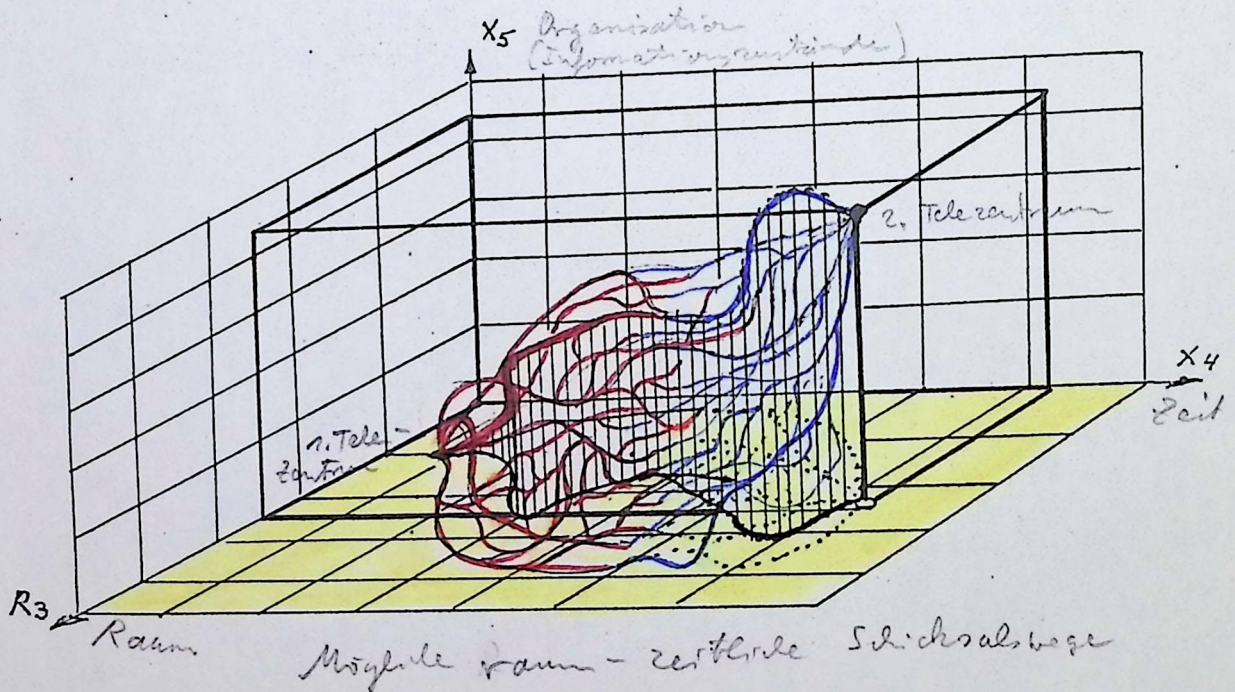 X5 Organisation
(Informationszustände)
2. Telezentrum
X4
Zeit
1. Tele-
Zentrum
R3
Raum
Mögliche raum-zeitliche Schicksalswege